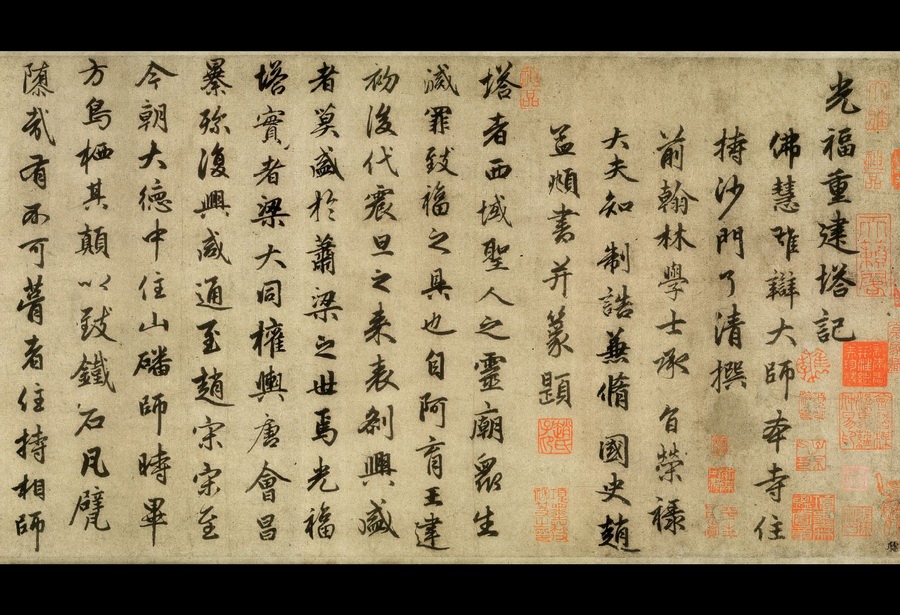 光福重建塔記
佛慧雄辯大師本寺住
持沙門了清撰
前翰林學士承旨榮祿
大夫知制誥兼脩國史趙
孟頫書并篆題
塔者西域聖人之靈廟眾生
滅罪致福之具也自阿育王建
初後代震旦之来表刹興盛
者莫盛於蕭梁之世焉光福
塔寶者梁大同權輿唐會昌
暴殄復興咸通至趙宋宋至
今朝大德中住山磻師時畢
方鳥栖其顛以致鐵石凡甓
隳哉有不可葺者住持相師